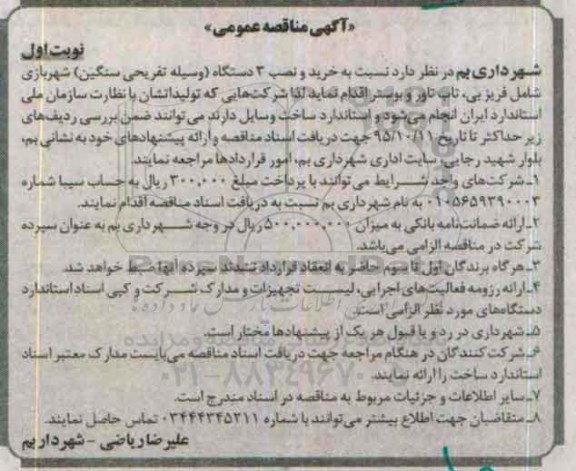 «آگهی مناقصه عمومی»
نوبت اول
شهرداری بم در نظر دارد نسبت به خرید و نصب ۳ دستگاه (وسیله تفریحی سنگین) شهربازی
شامل فریز بی، تاپ تاور و بوستر اقدام نماید لذا شرکت‌هایی که تولیداتشان با نظارت سازمان ملی
استاندارد ایران انجام می‌شود و استاندارد ساخت وسایل دارند می‌توانند ضمن بررسی ردیف‌های
زیر حداکثر تا تاریخ ۹۵/۱۰/۱۱ جهت دریافت اسناد مناقصه و ارائه پیشنهادهای خود به نشانی بم،
بلوار شهید رجایی، سایت اداری شهرداری بم، امور قراردادها مراجعه نمایند.
۱ـ شرکت‌های واجد شرایط می توانند با پرداخت مبلغ ۳۰۰,۰۰۰ ریال به حساب سیبا شماره
۰۱۰۵۶۵۹۳۹۰۰۰۳ به نام شهرداری بم نسبت به دریافت اسناد مناقصه اقدام نمایند.
۲ـ ارائه ضمانت‌نامه بانکی به میزان ۵۰۰,۰۰۰,۰۰۰ ریال در وجه شهرداری بم به عنوان سپرده
شرکت در مناقصه الزامی می‌باشد.
۳ـ هرگاه برندگان اول تا سوم حاضر به انعقاد قرارداد نشدند سپرده آنها ضبط خواهد شد.
۴ـ ارائه رزومه فعالیت‌های اجرایی، لیست تجهیزات و مدارک شرکت و کپی اسناد استاندارد
دستگاه‌های مورد نظر الزامی است.
۵ـ شهرداری در رد و یا قبول هر یک از پیشنهادها مختار است.
۶ـ شرکت کنندگان در هنگام مراجعه جهت دریافت اسناد مناقصه می‌بایست مدارک معتبر اسناد
استاندارد ساخت را ارائه نمایند.
۷ـ سایر اطلاعات و جزئیات مربوط به مناقصه در اسناد مندرج است.
۸ـ متقاضیان جهت اطلاع بیشتر می‌توانند با شماره ۰۳۴۴۴۳۴۵۲۱۱ تماس حاصل نمایند.
علیرضا ریاضی - شهردار بم
۰۲۱-۸۸۳۴۹۶۷۰